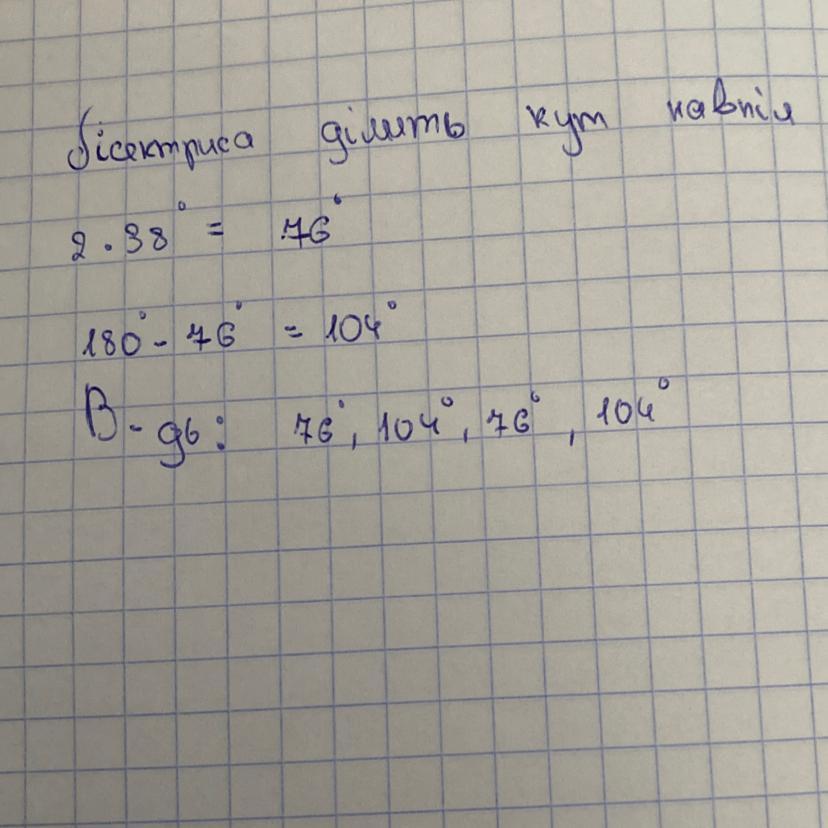 бісектриса ділить кут навпіл
2 · 38° = 76°
180° - 76° = 104°
В-дь: 76°, 104°, 76°, 104°